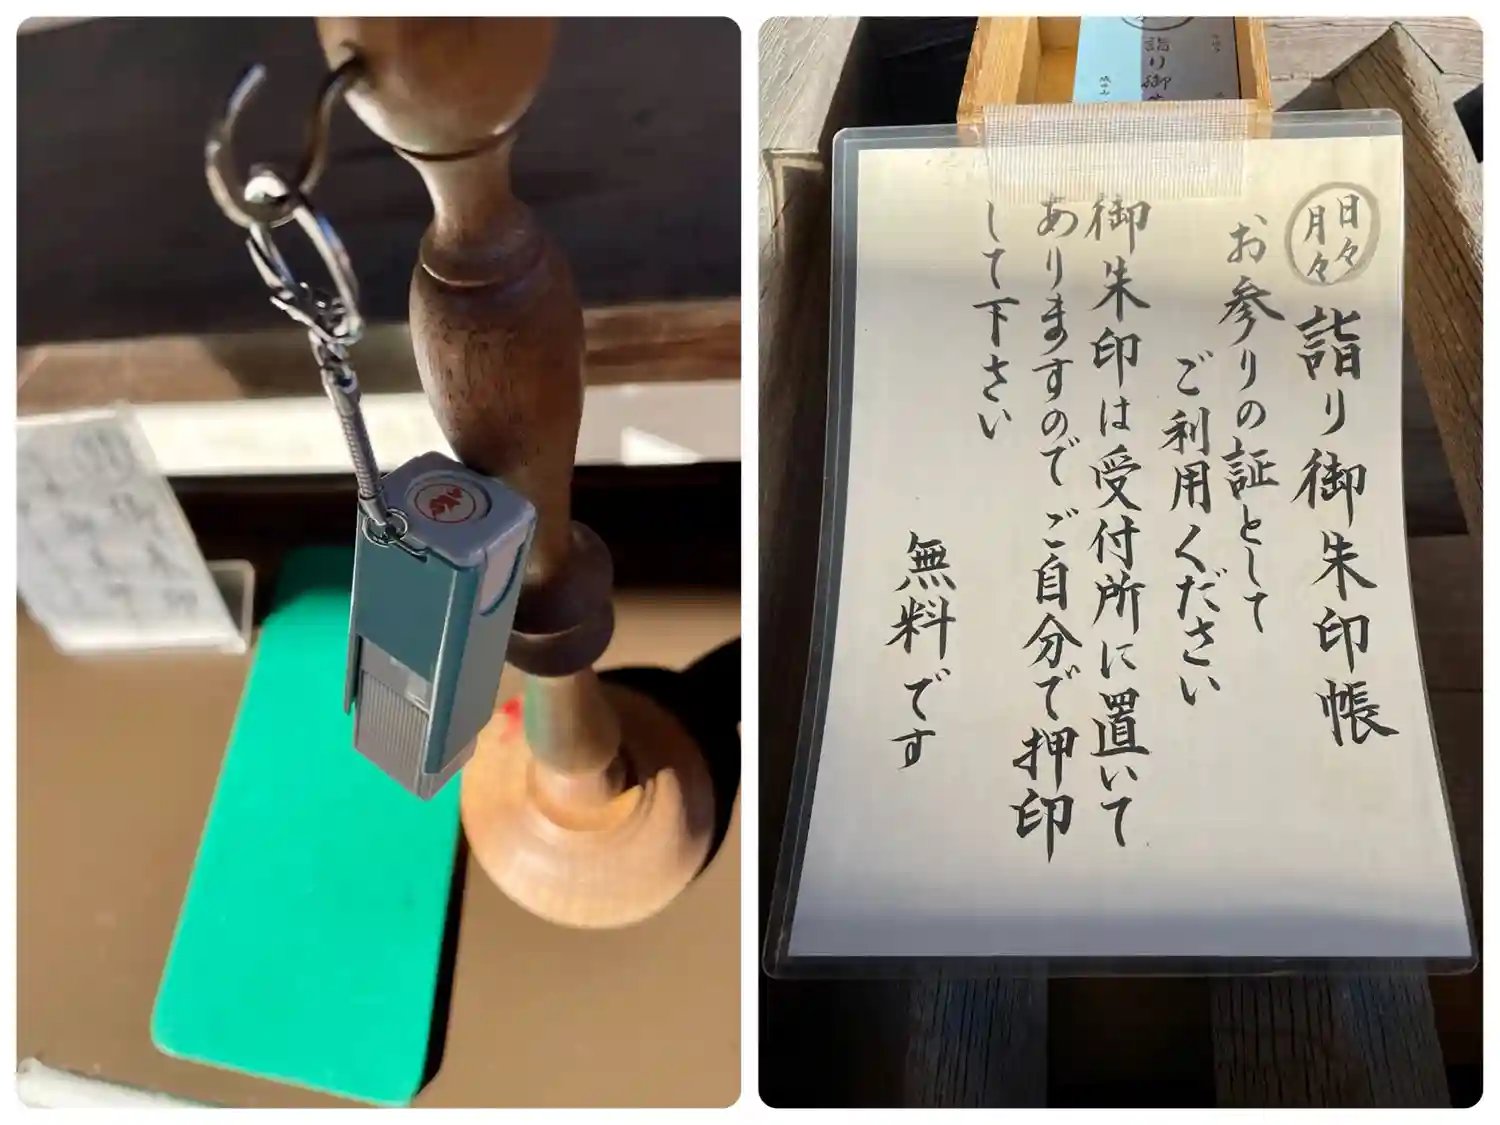 詣り御
日々
月々
詣り御朱印帳
お参りの証として
ご利用ください
御朱印は受付所に置いて
ありますので ご自分で押印
して下さい
無料です